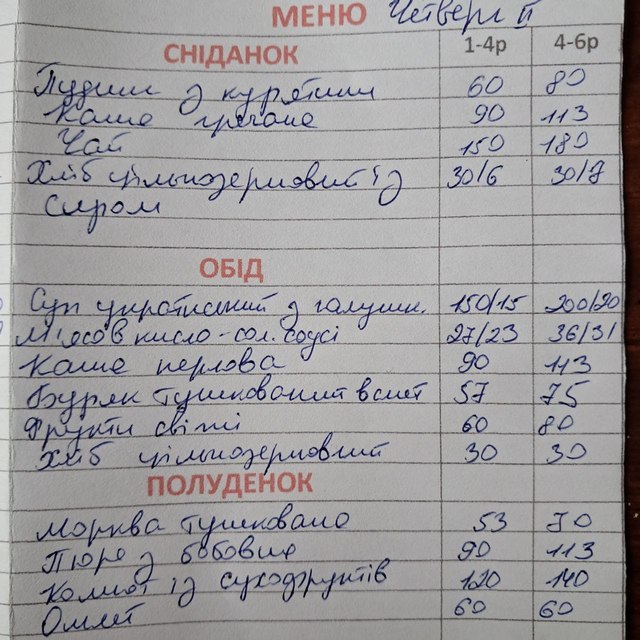 МЕНЮ Четверг II
СНІДАНОК 1-4р 4-6р
Пудинг з курятини 60 80
Каша гречана 90 113
Чай 150 180
Хліб цільнозерновий і з 30/6 30/7
сиром
ОБІД
Суп український з галушк. 150/15 200/20
М'ясо в кисло-сол. соусі 27/23 36/31
Каша перлова 90 113
Буряк тушкований в смет 57 75
Фрукти свіжі 60 80
Хліб цільнозерновий 30 30
ПОЛУДЕНОК
Морква тушкована 53 70
Пюре з бобових 90 113
Компот із сухофруктів 120 140
Омлет 60 60